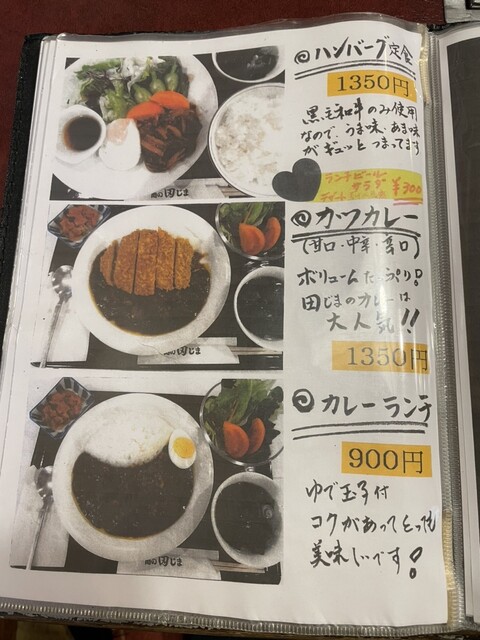 ◎ハンバーグ定食
1350円
黒毛和牛のみ使用
なので、うま味・あま味
がギュッとつまってます
ランチビール
サラダ
¥300
◎カツカレー
(甘口・中辛・辛口)
ボリュームたっぷり!
田じまのカレーは
大人気!!
1350円
◎カレーランチ
900円
ゆで玉子付
コクがあってとっても
美味しいです!
田じま
田じま
田じま